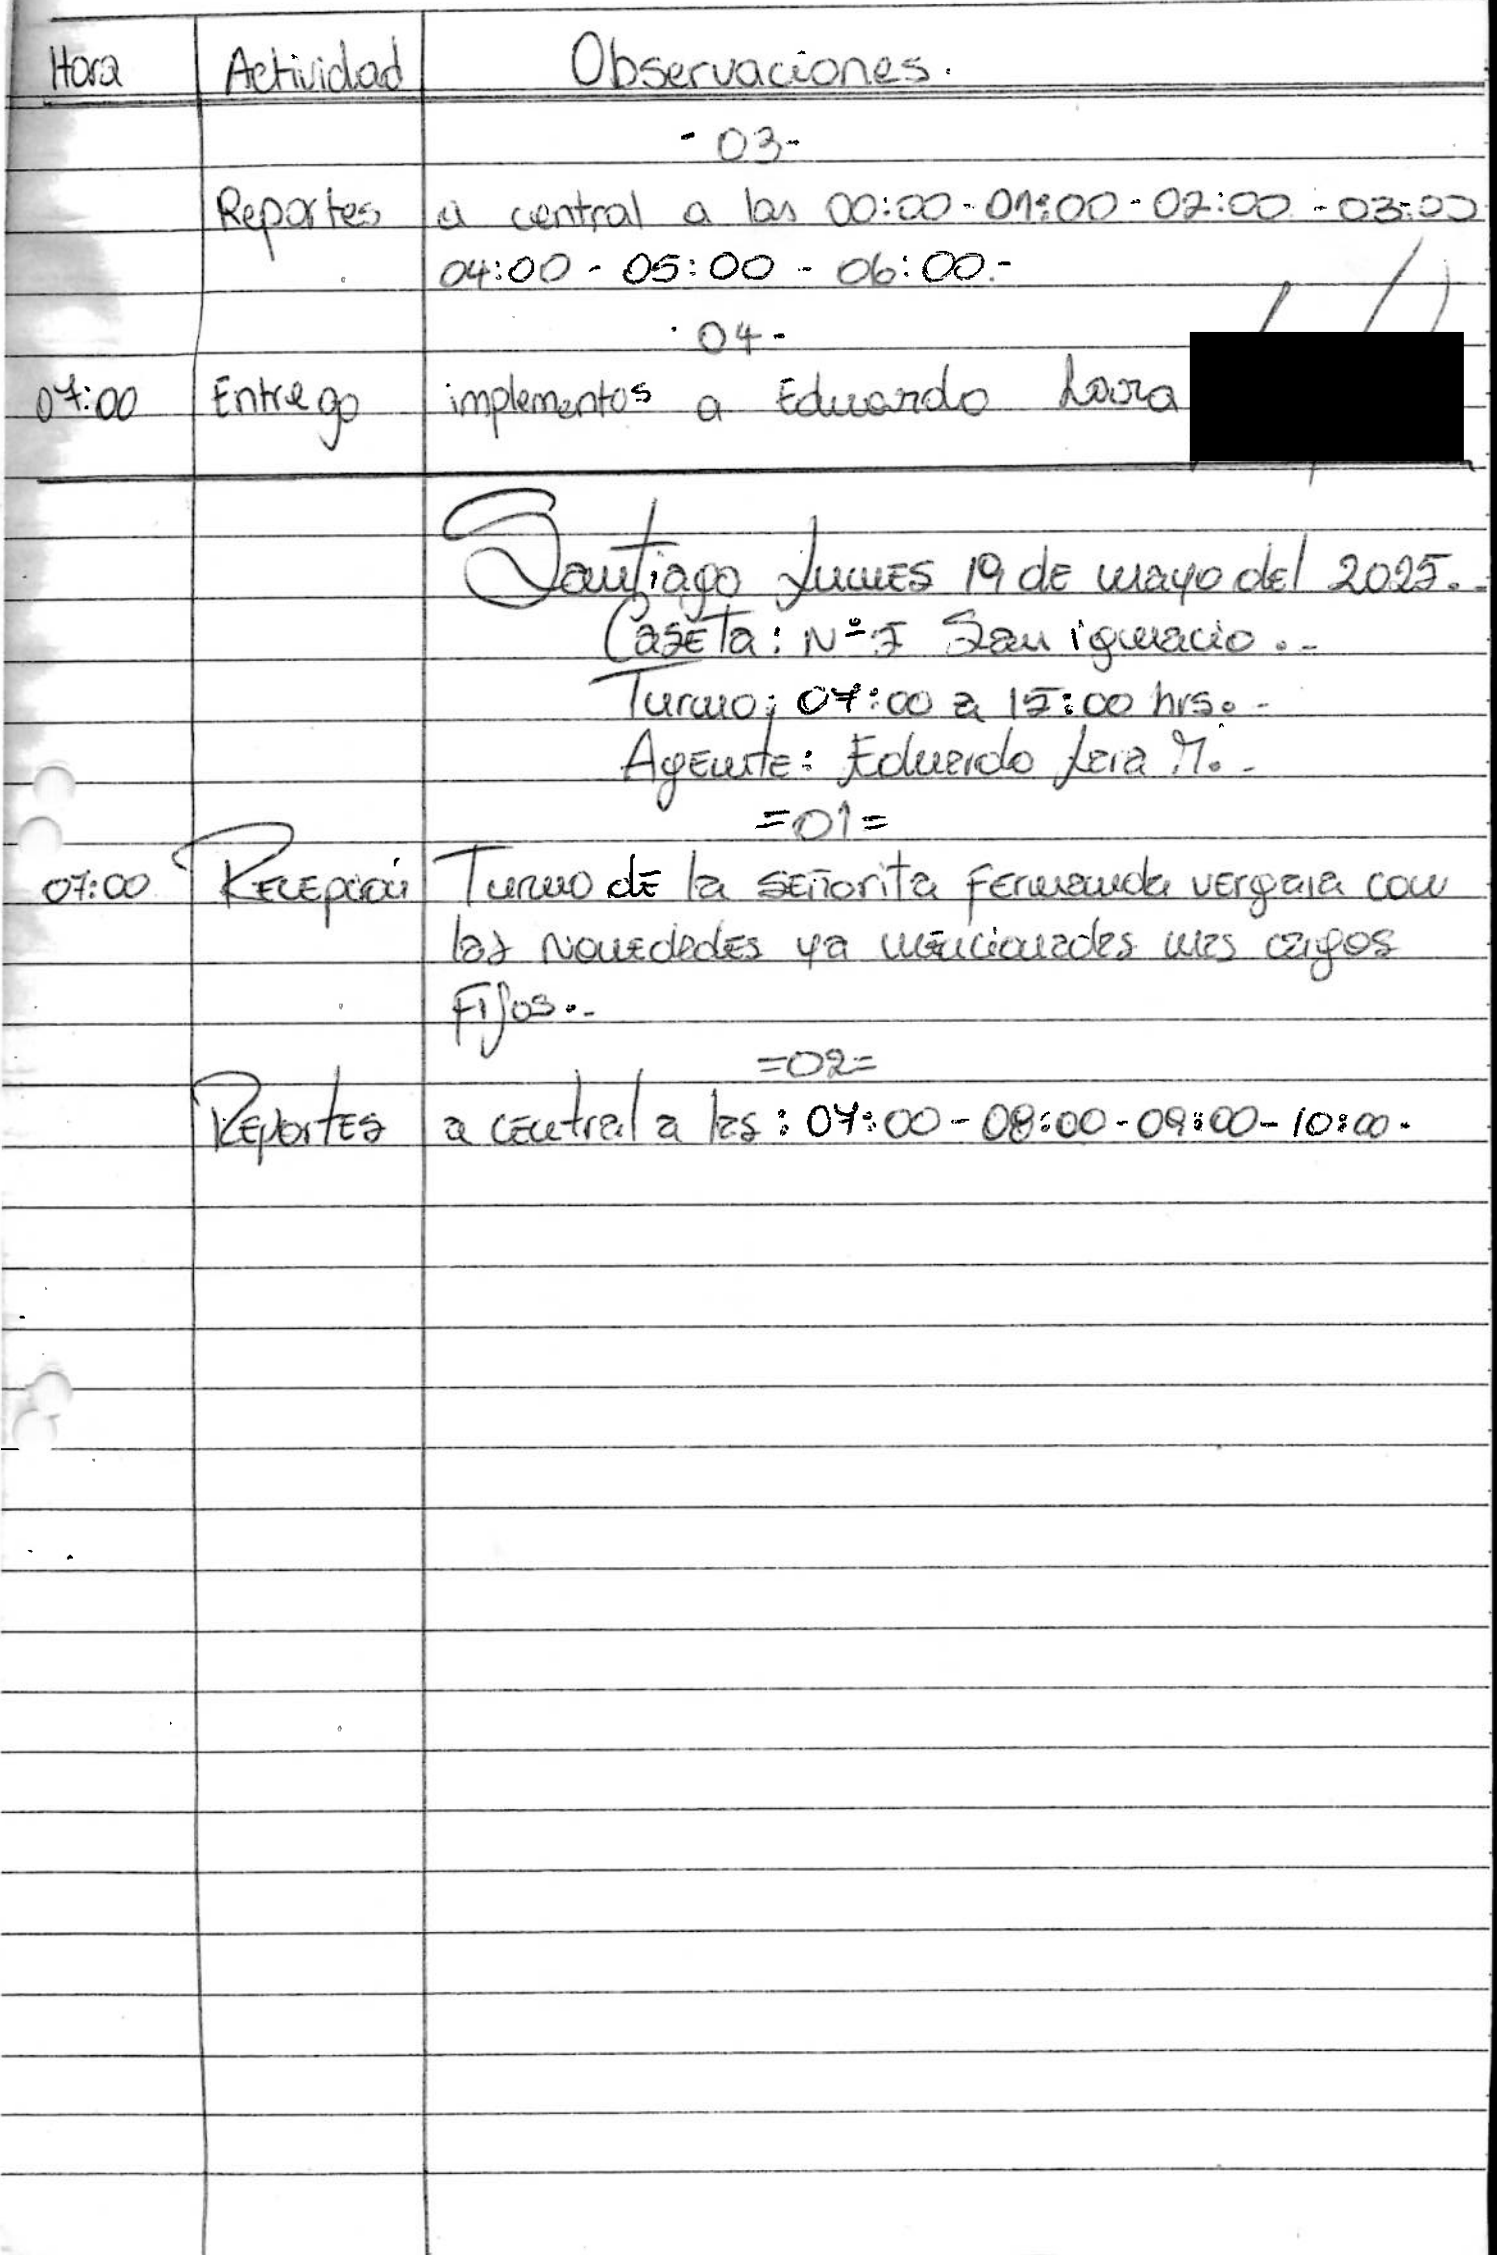 Hora Actividad Observaciones.
- 03-
Reportes a central a las 00:00 - 01:00 - 02:00 - 03:00
04:00 - 05:00 - 06:00.-
- 04 -
07:00 Entrego implementos a Eduardo Lara
Santiago Lunes 19 de mayo del 2025..
Caseta: Nº 7 San ignacio..-
Turno; 07:00 a 15:00 hrs..-
Agente: Eduardo Lara M..-
=01=
07:00 Recepción Turno de la señorita Fernanda vergara con
las Novedades ya mencionadas mas cargos
Fijos..-
=02=
Reportes a central a las: 07:00 - 08:00 - 09:00 - 10:00.